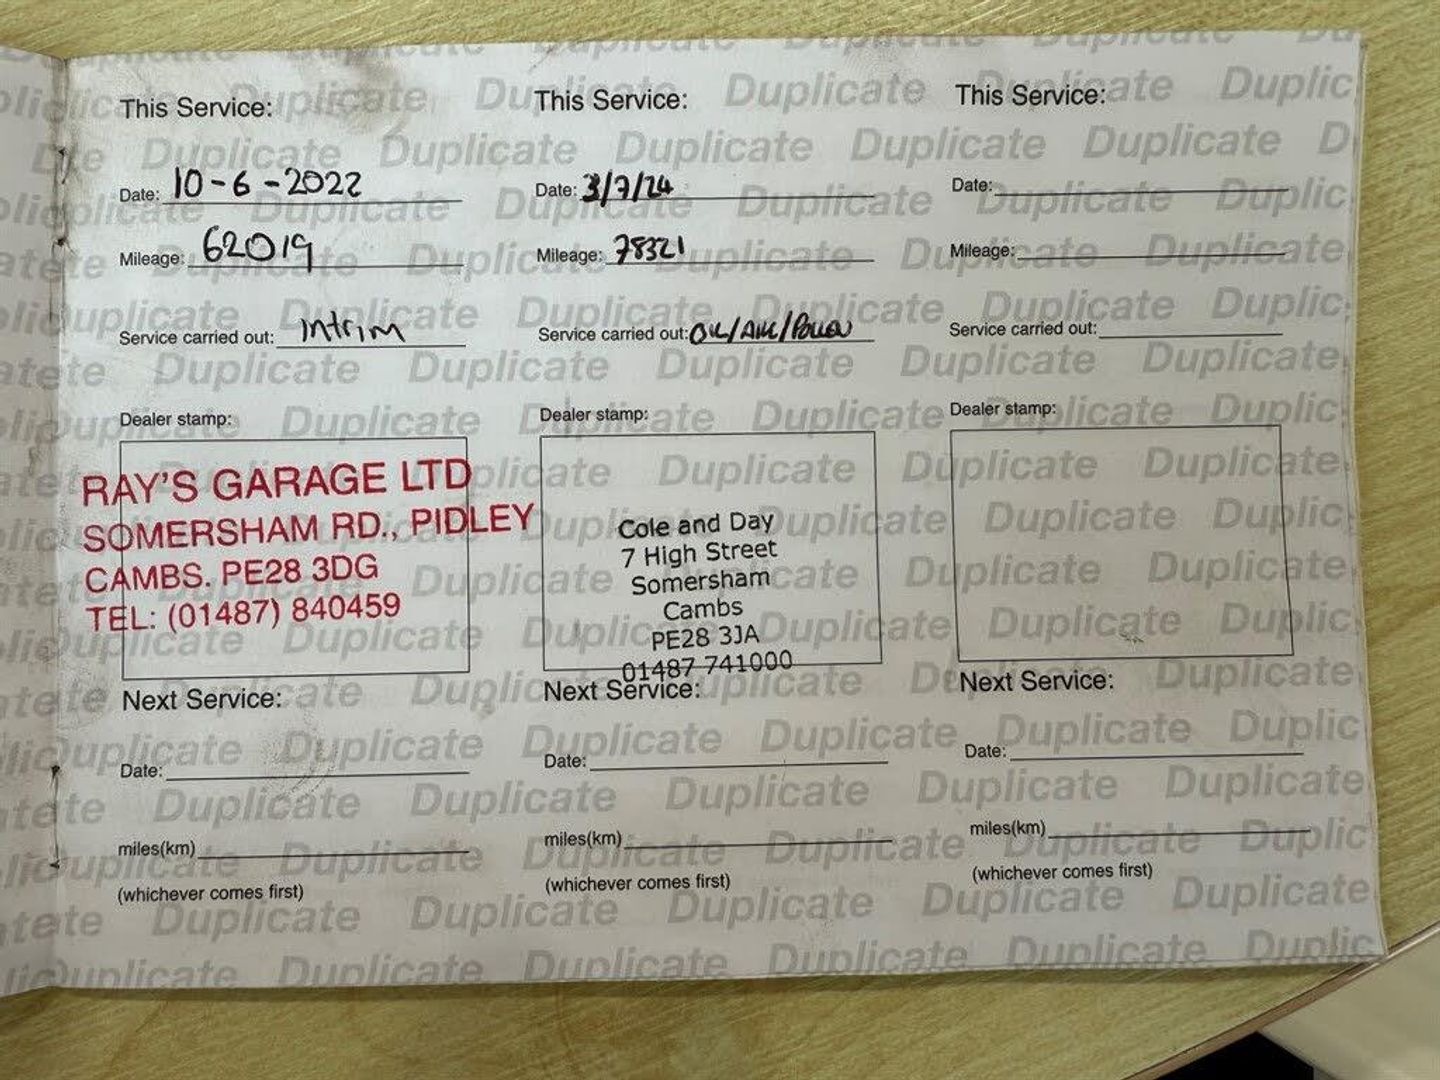 This Service:
Date: 10-6-2022
Mileage: 62019
Service carried out: Intrim
Dealer stamp:
RAY'S GARAGE LTD
SOMERSHAM RD., PIDLEY
CAMBS. PE28 3DG
TEL: (01487) 840459
Next Service:
Date:
miles(km)
(whichever comes first)
This Service:
Date: 3/7/24
Mileage: 78321
Service carried out: OIL/AIR/POLLEN
Dealer stamp:
Cole and Day
7 High Street
Somersham
Cambs
PE28 3JA
01487 741000
Next Service:
Date:
miles(km)
(whichever comes first)
This Service:
Date:
Mileage:
Service carried out:
Dealer stamp:
Next Service:
Date:
miles(km)
(whichever comes first)